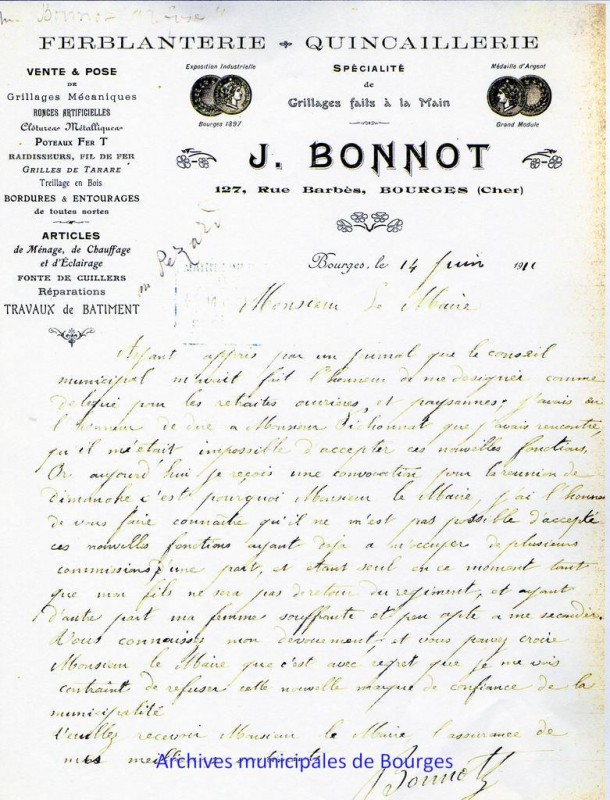 FERBLANTERIE QUINCAILLERIE
VENTE & POSE
DE
Grillages Mécaniques
RONCES ARTIFICIELLES
Clôtures Métalliques
POTEAUX FER T
RAIDISSEURS, FIL DE FER
GRILLES DE TARARE
Treillage en Bois
BORDURES & ENTOURAGES
de toutes sortes
ARTICLES
de Ménage, de Chauffage
et d'Éclairage
FONTE DE CUILLERS
Réparations
TRAVAUX de BATIMENT
Exposition Industrielle
Bourges 1897
SPÉCIALITÉ
de
Grillages faits à la Main
Médaille d'Argent
Grand Module
J. BONNOT
127, Rue Barbès, BOURGES (Cher)
Bourges, le 14 Juin 1911
Monsieur le Maire
Ayant appris par un journal que le conseil
municipal m'avait fait l'honneur de me designer comme
delegué pour les retraites ouvrières et paysannes; j'avais eu
l'honneur de dire a Monsieur Pichonnat que j'avais rencontré,
qu'il m'était impossible d'accepter ces nouvelles fonctions.
Or aujourd'hui je reçois une convocation pour la reunion de
dimanche c'est pourquoi Monsieur le Maire, j'ai l'honneur
de vous faire connaître qu'il ne m'est pas possible d'accepté
ces nouvelles fonctions ayant deja a m'occuper de plusieurs
commissions d'une part, et etant seul en ce moment tant
que mon fils ne sera pas de retour du regiment, et ayant
d'autre part ma femme souffrante et peu apte a me secander.
Vous connaissez mon devouement, et vous pouvez croire
Monsieur le Maire que c'est avec regret que je me vois
contraint de refuser cette nouvelle marque de confiance de la
municipalité
Veuillez recevoir Monsieur le Maire l'assurance de
mes meilleurs sentiments
Bonnot
Archives municipales de Bourges